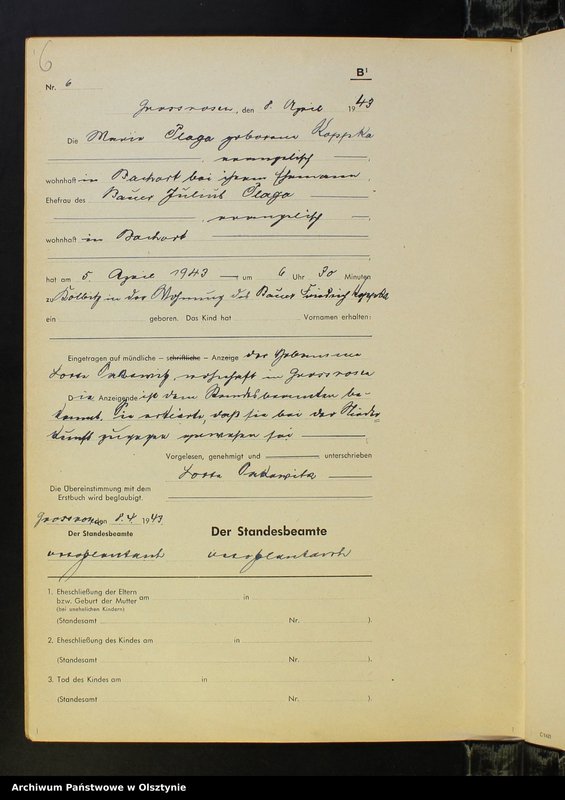 6
B¹
Nr. 6
Grossrosen, den 8. April 1943
Die Marie Plaga geborene Koppka
, evangelisch,
wohnhaft in Bachort bei ihrem Ehemann,
Ehefrau des Bauer Julius Plaga
, evangelisch,
wohnhaft in Bachort
hat am 5. April 1943 um 6 Uhr 30 Minuten
zu Kölbitz in der Wohnung des Bauer Friedrich Koppka
ein geboren. Das Kind hat Vornamen erhalten:
Eingetragen auf mündliche – schriftliche – Anzeige der Hebamme
Lotte wohnhaft in Grossrosen
Die Anzeigende ist dem Standesbeamten be-
kannt. Sie erklärte, daß sie bei der Nieder-
kunft zugegen gewesen sei
Vorgelesen, genehmigt und unterschrieben
Lotte
Die Übereinstimmung mit dem
Erstbuch wird beglaubigt.
Grossrosen, den 8.4. 1943
Der Standesbeamte
Der Standesbeamte
1. Eheschließung der Eltern
bzw. Geburt der Mutter am in
(bei unehelichen Kindern)
(Standesamt Nr. ).
2. Eheschließung des Kindes am in
(Standesamt Nr. ).
3. Tod des Kindes am in
(Standesamt Nr. ).
C 1421
Archiwum Państwowe w Olsztynie